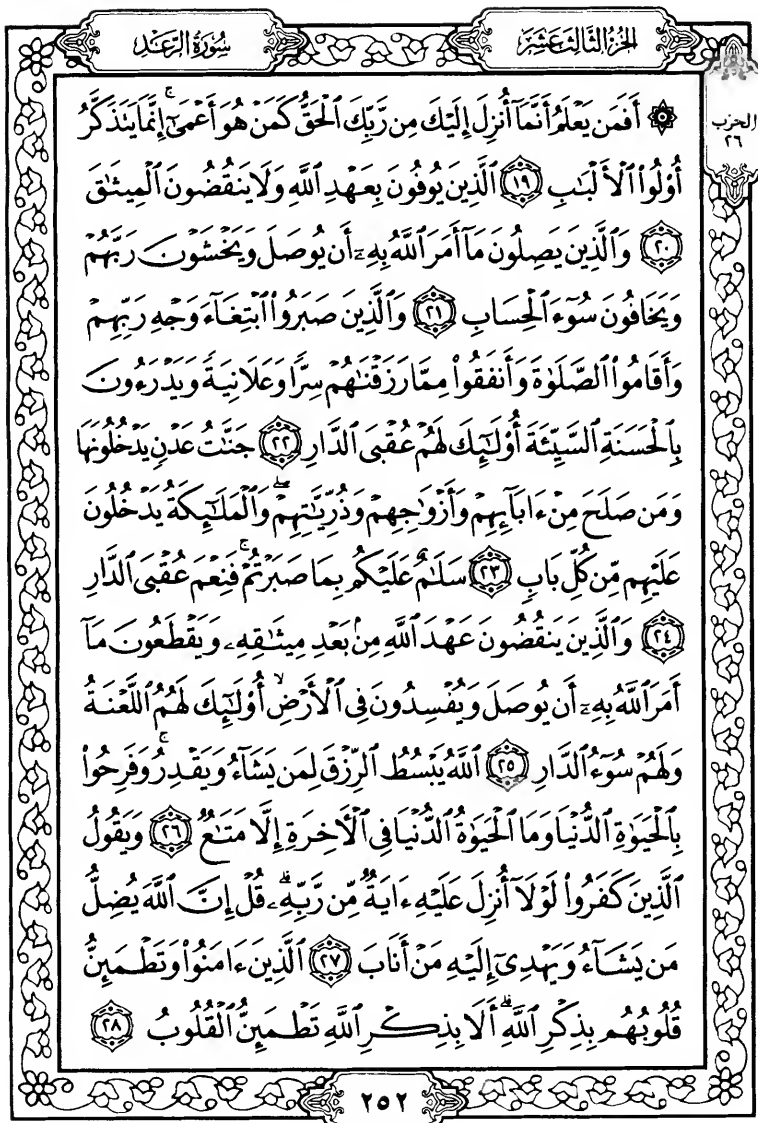 الجزء الثالث عشر
سورة الرعد
الحزب
٢٦
۞ أَفَمَن يَعْلَمُ أَنَّمَآ أُنزِلَ إِلَيْكَ مِن رَّبِّكَ ٱلْحَقُّ كَمَنْ هُوَ أَعْمَىٰٓ ۚ إِنَّمَا يَتَذَكَّرُ
أُو۟لُوا۟ ٱلْأَلْبَٰبِ ﴿١٩﴾ ٱلَّذِينَ يُوفُونَ بِعَهْدِ ٱللَّهِ وَلَا يَنقُضُونَ ٱلْمِيثَٰقَ
﴿٢٠﴾ وَٱلَّذِينَ يَصِلُونَ مَآ أَمَرَ ٱللَّهُ بِهِۦٓ أَن يُوصَلَ وَيَخْشَوْنَ رَبَّهُمْ
وَيَخَافُونَ سُوٓءَ ٱلْحِسَابِ ﴿٢١﴾ وَٱلَّذِينَ صَبَرُوا۟ ٱبْتِغَآءَ وَجْهِ رَبِّهِمْ
وَأَقَامُوا۟ ٱلصَّلَوٰةَ وَأَنفَقُوا۟ مِمَّا رَزَقْنَٰهُمْ سِرًّا وَعَلَانِيَةً وَيَدْرَءُونَ
بِٱلْحَسَنَةِ ٱلسَّيِّئَةَ أُو۟لَٰٓئِكَ لَهُمْ عُقْبَى ٱلدَّارِ ﴿٢٢﴾ جَنَّٰتُ عَدْنٍ يَدْخُلُونَهَا
وَمَن صَلَحَ مِنْ ءَابَآئِهِمْ وَأَزْوَٰجِهِمْ وَذُرِّيَّٰتِهِمْ ۖ وَٱلْمَلَٰٓئِكَةُ يَدْخُلُونَ
عَلَيْهِم مِّن كُلِّ بَابٍ ﴿٢٣﴾ سَلَٰمٌ عَلَيْكُم بِمَا صَبَرْتُمْ ۚ فَنِعْمَ عُقْبَى ٱلدَّارِ
﴿٢٤﴾ وَٱلَّذِينَ يَنقُضُونَ عَهْدَ ٱللَّهِ مِنۢ بَعْدِ مِيثَٰقِهِۦ وَيَقْطَعُونَ مَآ
أَمَرَ ٱللَّهُ بِهِۦٓ أَن يُوصَلَ وَيُفْسِدُونَ فِى ٱلْأَرْضِ ۙ أُو۟لَٰٓئِكَ لَهُمُ ٱللَّعْنَةُ
وَلَهُمْ سُوٓءُ ٱلدَّارِ ﴿٢٥﴾ ٱللَّهُ يَبْسُطُ ٱلرِّزْقَ لِمَن يَشَآءُ وَيَقْدِرُ ۚ وَفَرِحُوا۟
بِٱلْحَيَوٰةِ ٱلدُّنْيَا وَمَا ٱلْحَيَوٰةُ ٱلدُّنْيَا فِى ٱلْءَاخِرَةِ إِلَّا مَتَٰعٌ ﴿٢٦﴾ وَيَقُولُ
ٱلَّذِينَ كَفَرُوا۟ لَوْلَآ أُنزِلَ عَلَيْهِ ءَايَةٌ مِّن رَّبِّهِۦ ۗ قُلْ إِنَّ ٱللَّهَ يُضِلُّ
مَن يَشَآءُ وَيَهْدِىٓ إِلَيْهِ مَنْ أَنَابَ ﴿٢٧﴾ ٱلَّذِينَ ءَامَنُوا۟ وَتَطْمَئِنُّ
قُلُوبُهُم بِذِكْرِ ٱللَّهِ ۗ أَلَا بِذِكْرِ ٱللَّهِ تَطْمَئِنُّ ٱلْقُلُوبُ ﴿٢٨﴾
٢٥٢